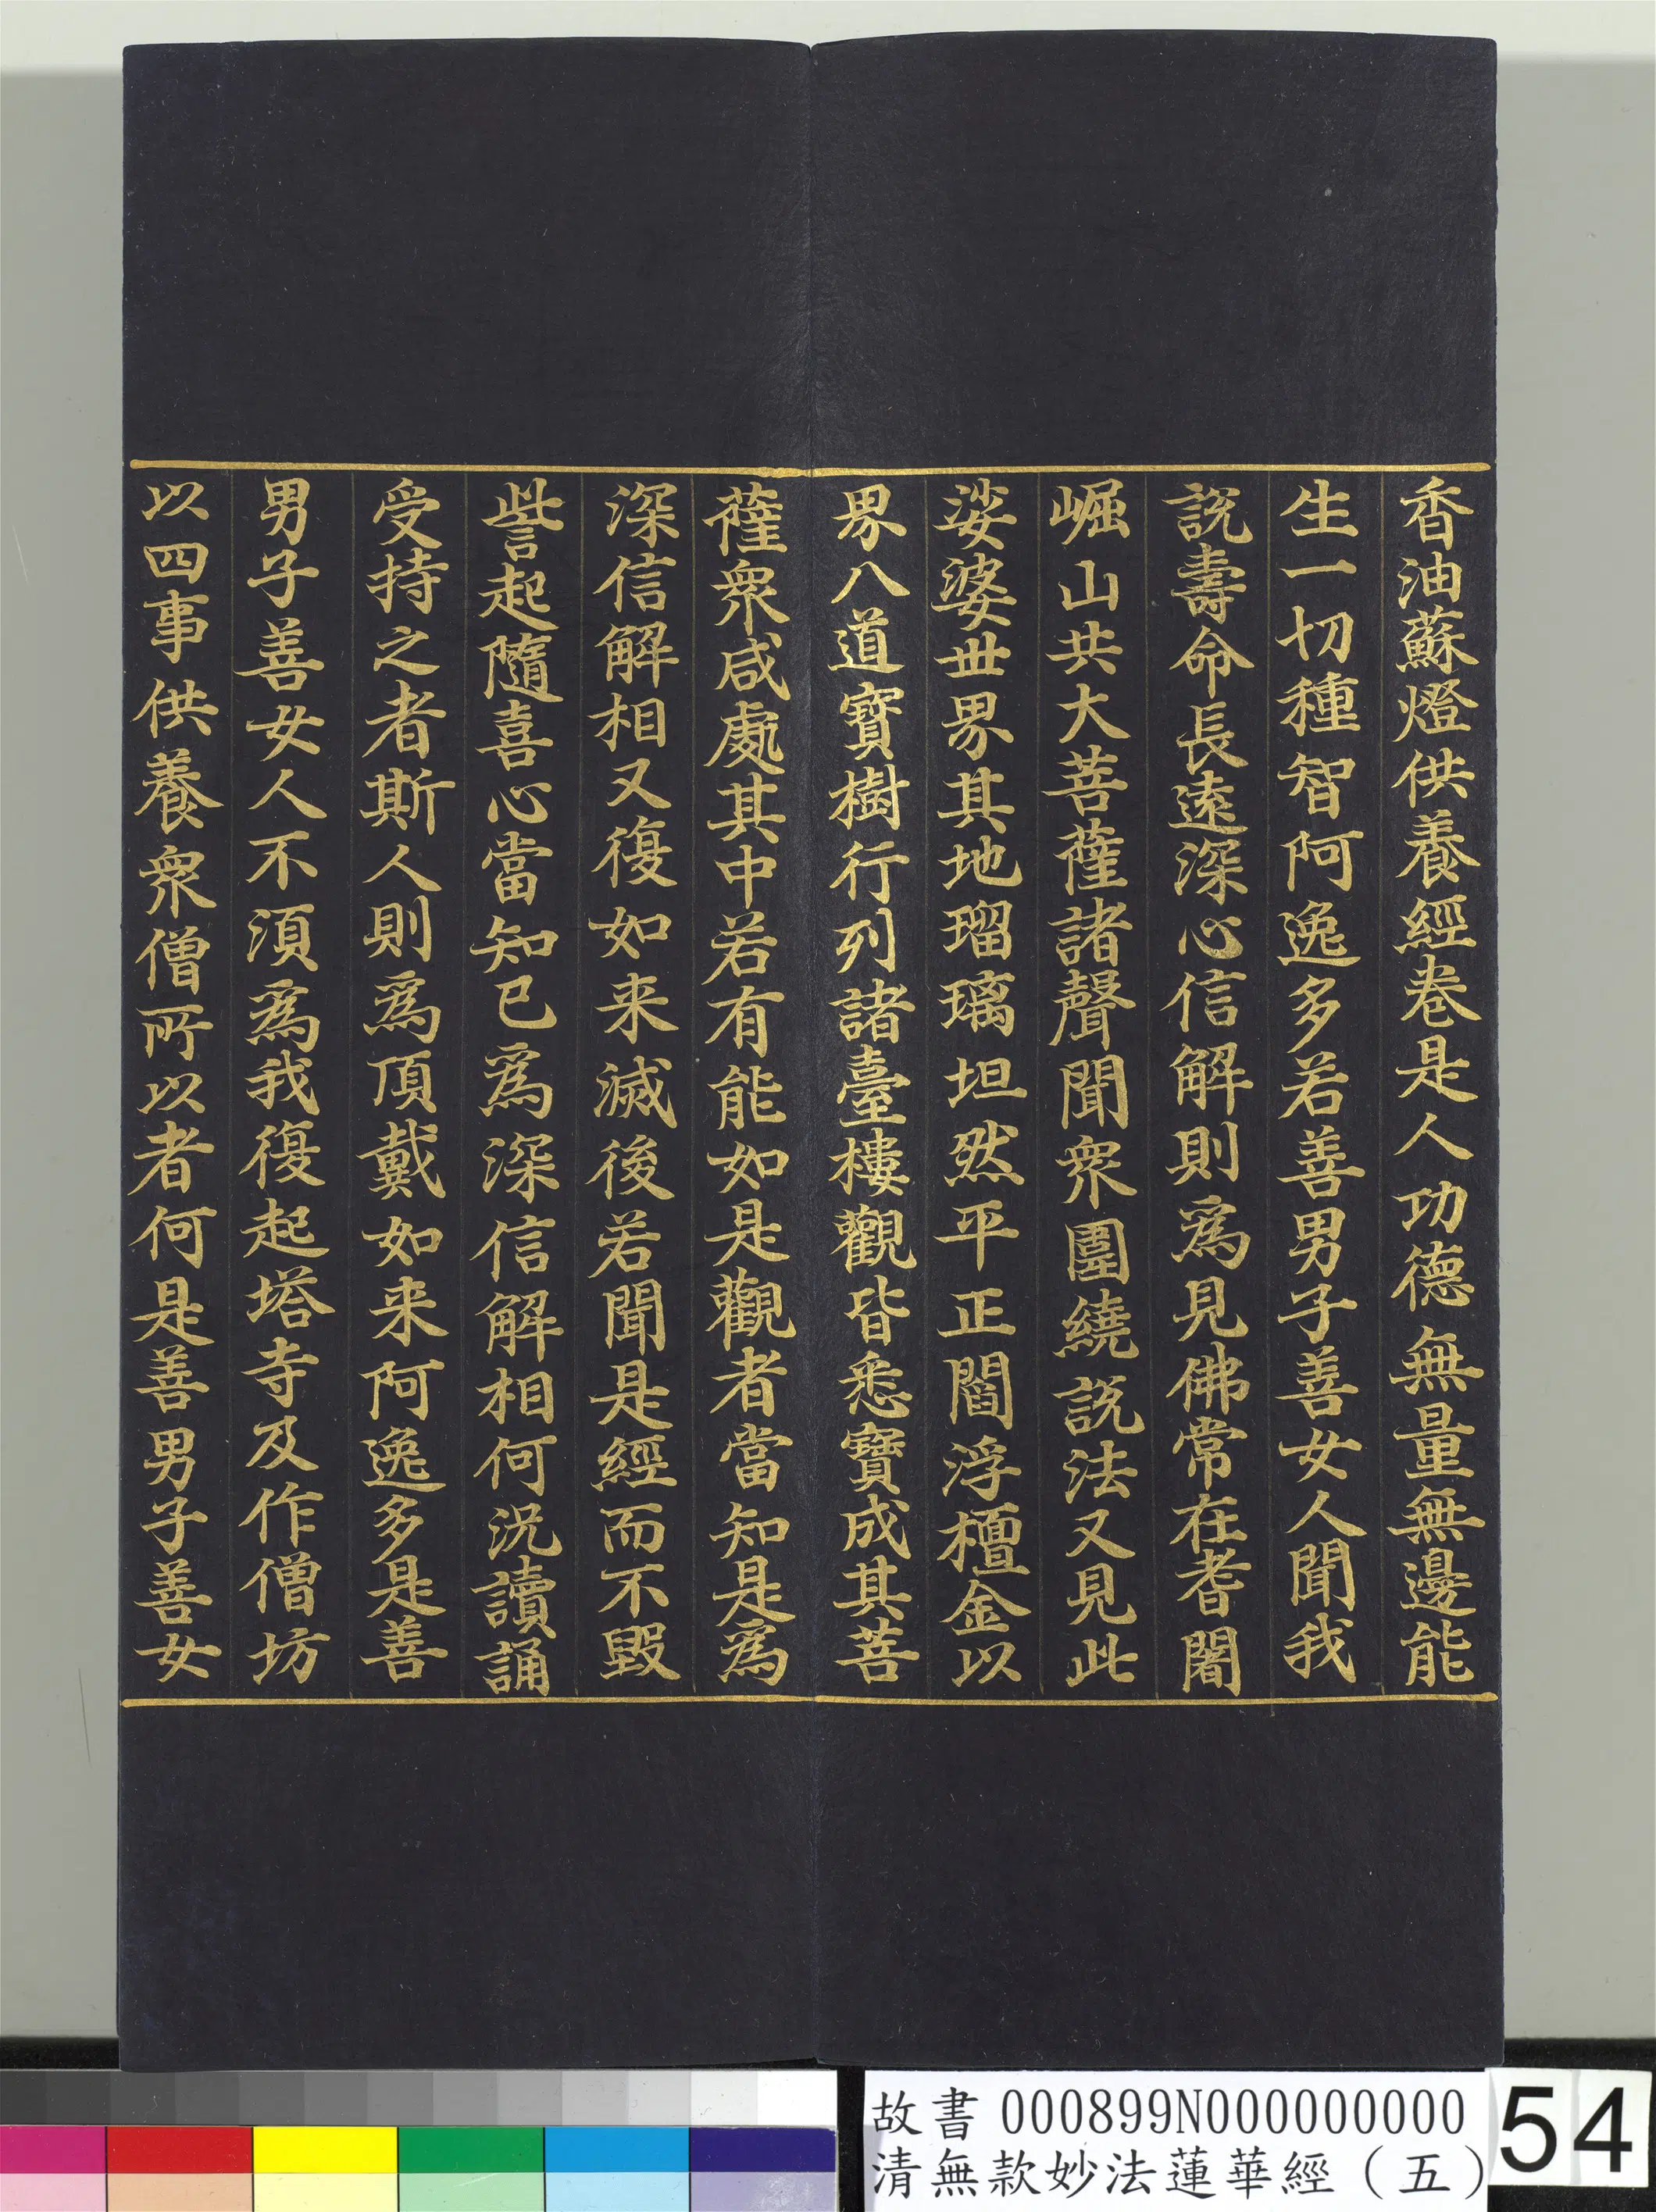 香油蘇燈供養經卷是人功德無量無邊能
生一切種智阿逸多若善男子善女人聞我
說壽命長遠深心信解則為見佛常在耆闍
崛山共大菩薩諸聲聞衆圍繞說法又見此
娑婆世界其地瑠璃坦然平正閻浮檀金以
界八道寶樹行列諸臺樓觀皆悉寶成其菩
薩衆咸處其中若有能如是觀者當知是為
深信解相又復如来滅後若聞是經而不毀
訾起隨喜心當知已為深信解相何況讀誦
受持之者斯人則為頂戴如来阿逸多是善
男子善女人不須為我復起塔寺及作僧坊
以四事供養衆僧所以者何是善男子善女
故書 000899N000000000
清無款妙法蓮華經（五）
54